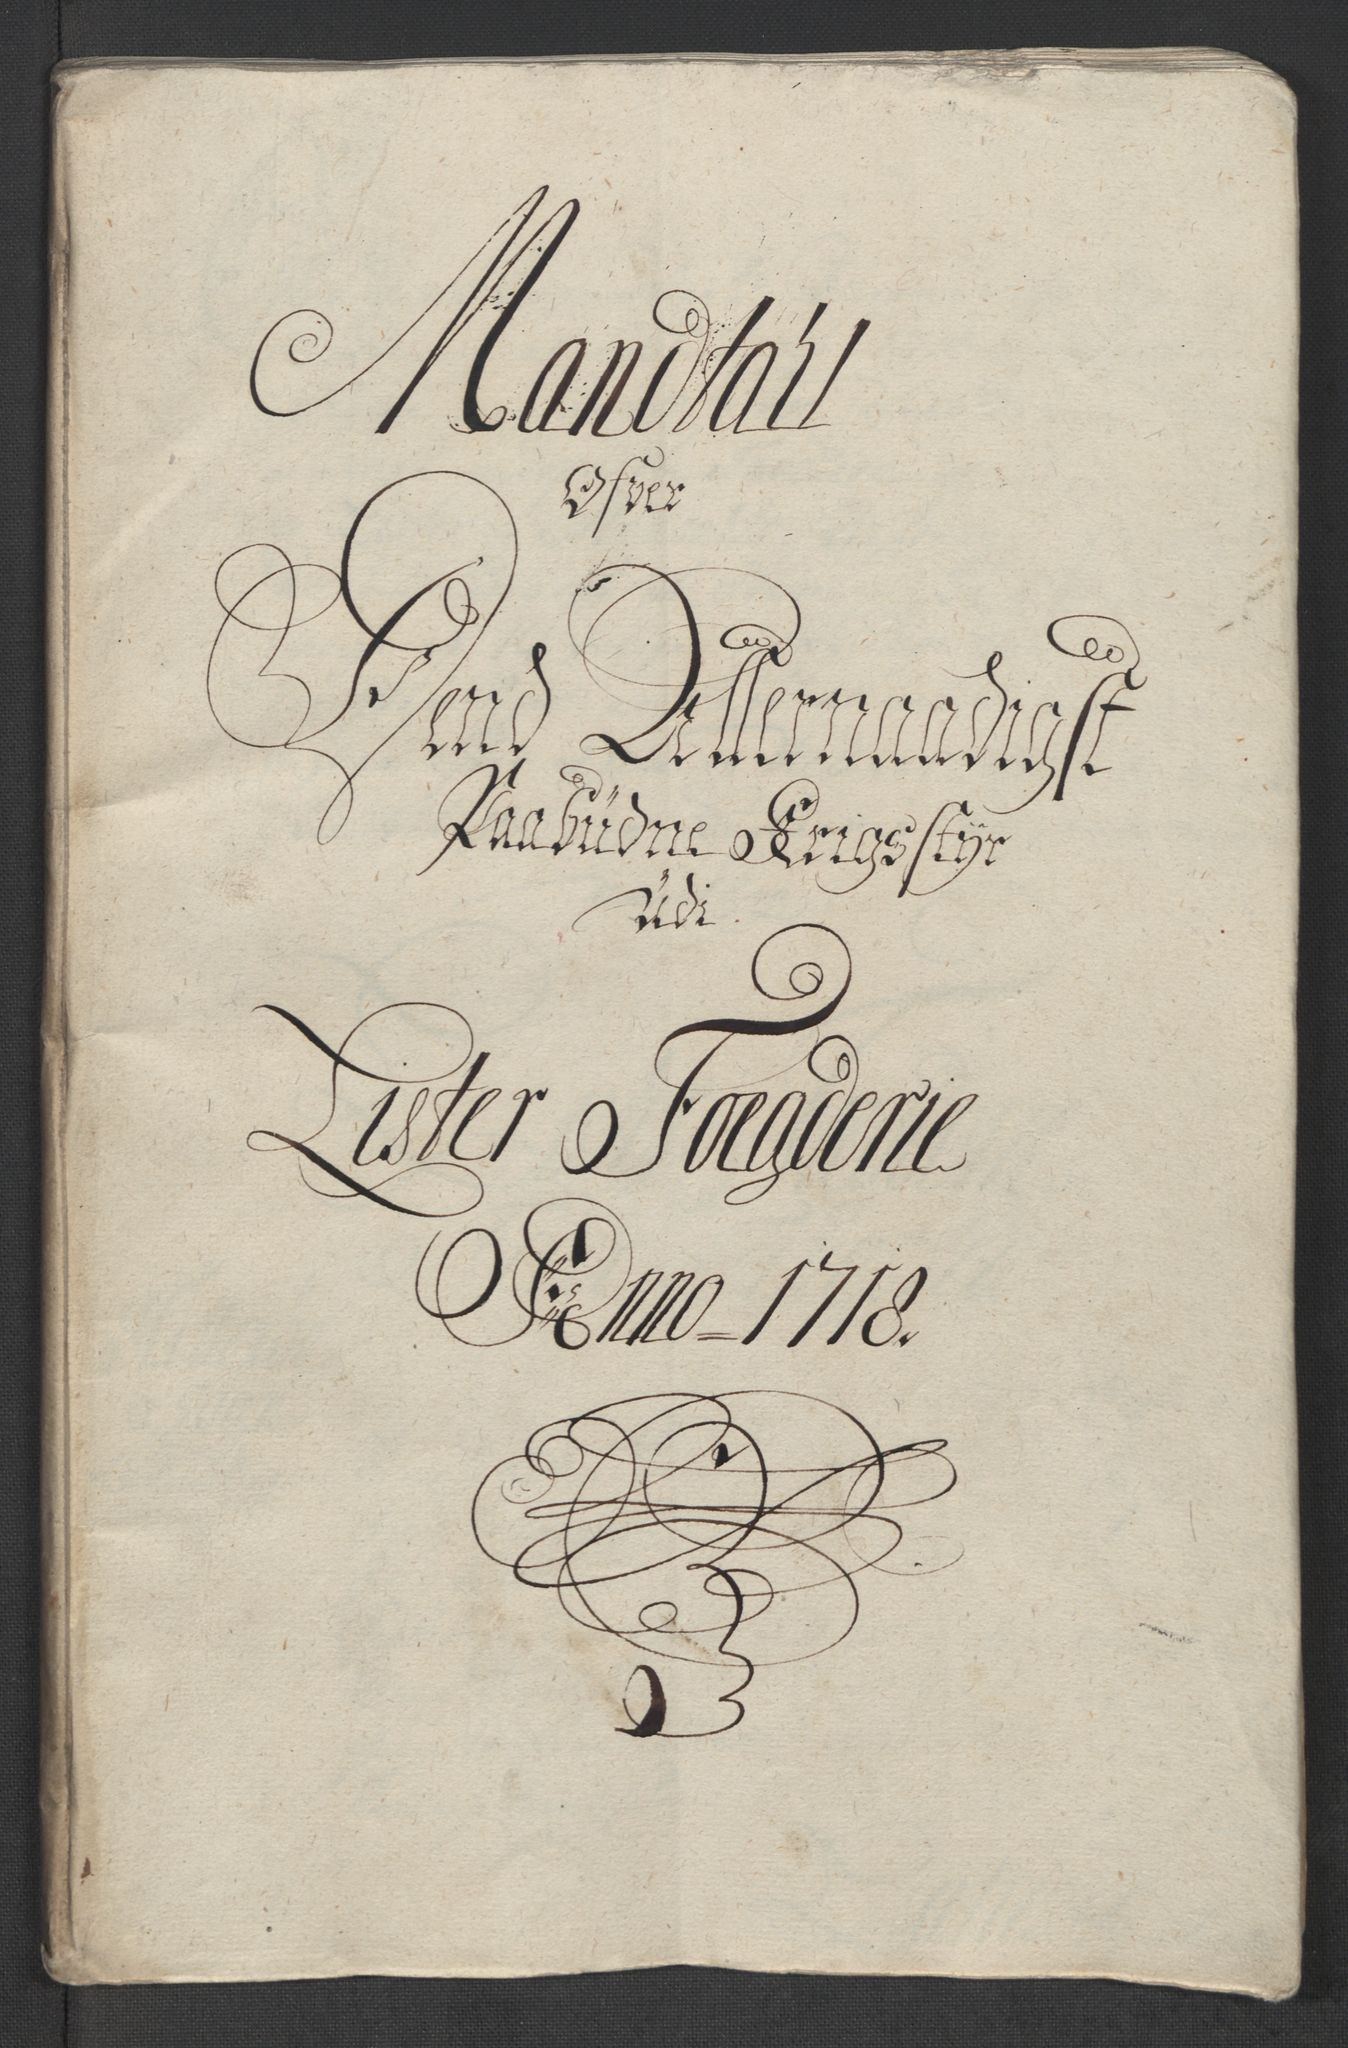 Mandtall
Ofver
Dend Allernaadigst
Paabüdne Krigsstÿr
Udi
Lister Foegderie
Anno = 1718.